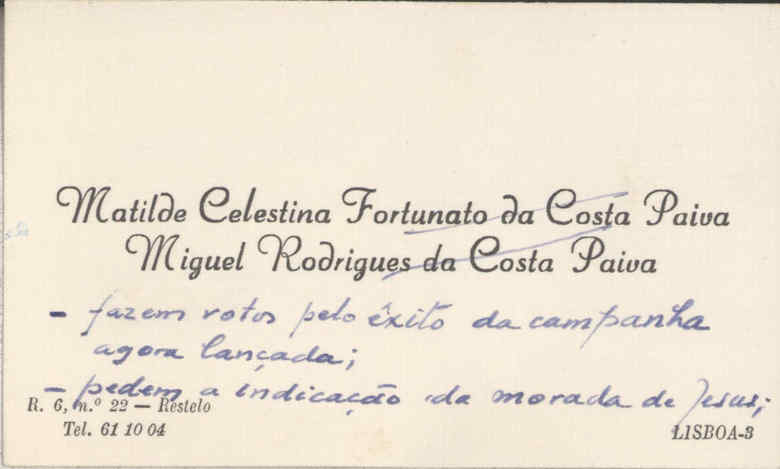 Matilde Celestina Fortunato da Costa Paiva
Miguel Rodrigues da Costa Paiva
- fazem votos pelo êxito da campanha
agora lançada;
- pedem a indicação da morada de Jesus;
R. 6, n.º 22 — Restelo
Tel. 61 10 04
LISBOA-3